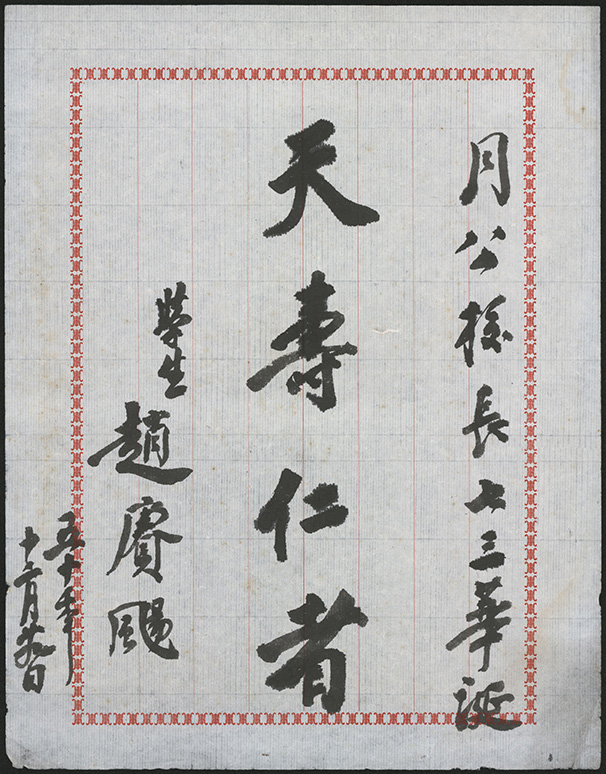 月公校長七三華誕
天壽仁者
學生趙賡颺
五十年
十二月廿九日